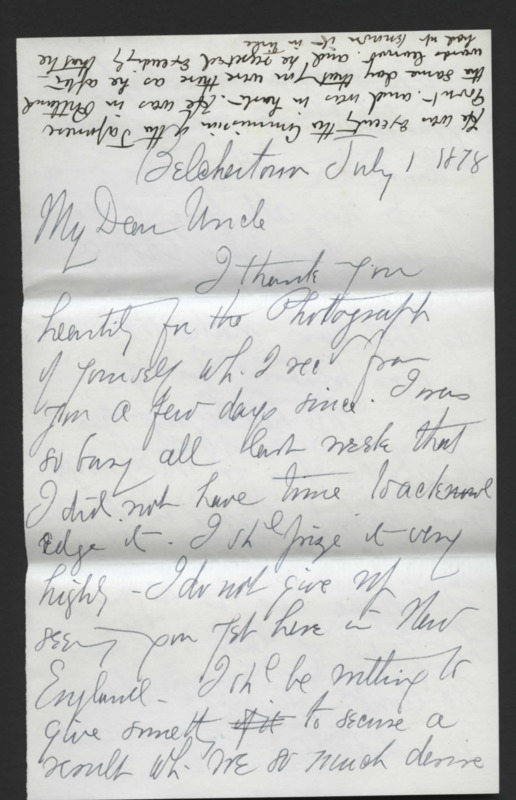 Belchertown July 1 1878
My Dear Uncle
I thank you
heartily for the Photograph
of yourself wh. I recd from
you a few days since. I was
so busy all last week that
I did not have time to acknowl
edge it - I shd prize it very
highly - I do not give up
seeing you yet here in New
England - I shd be willing to
give someth to secure a
result wh. we so much desire
He was executg the Commission of the Japanese
Govnt. and was in haste. He was in Portland
the same day that you were there as he after-
wards learned and he regretted exceedingly that he
had not known it in time